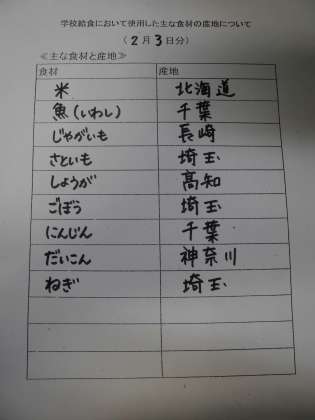 学校給食において使用した主な食材の産地について
(2月3日分)
≪主な食材と産地≫
食材 産地
米 北海道
魚(いわし) 千葉
じゃがいも 長崎
さといも 埼玉
しょうが 高知
ごぼう 埼玉
にんじん 千葉
だいこん 神奈川
ねぎ 埼玉